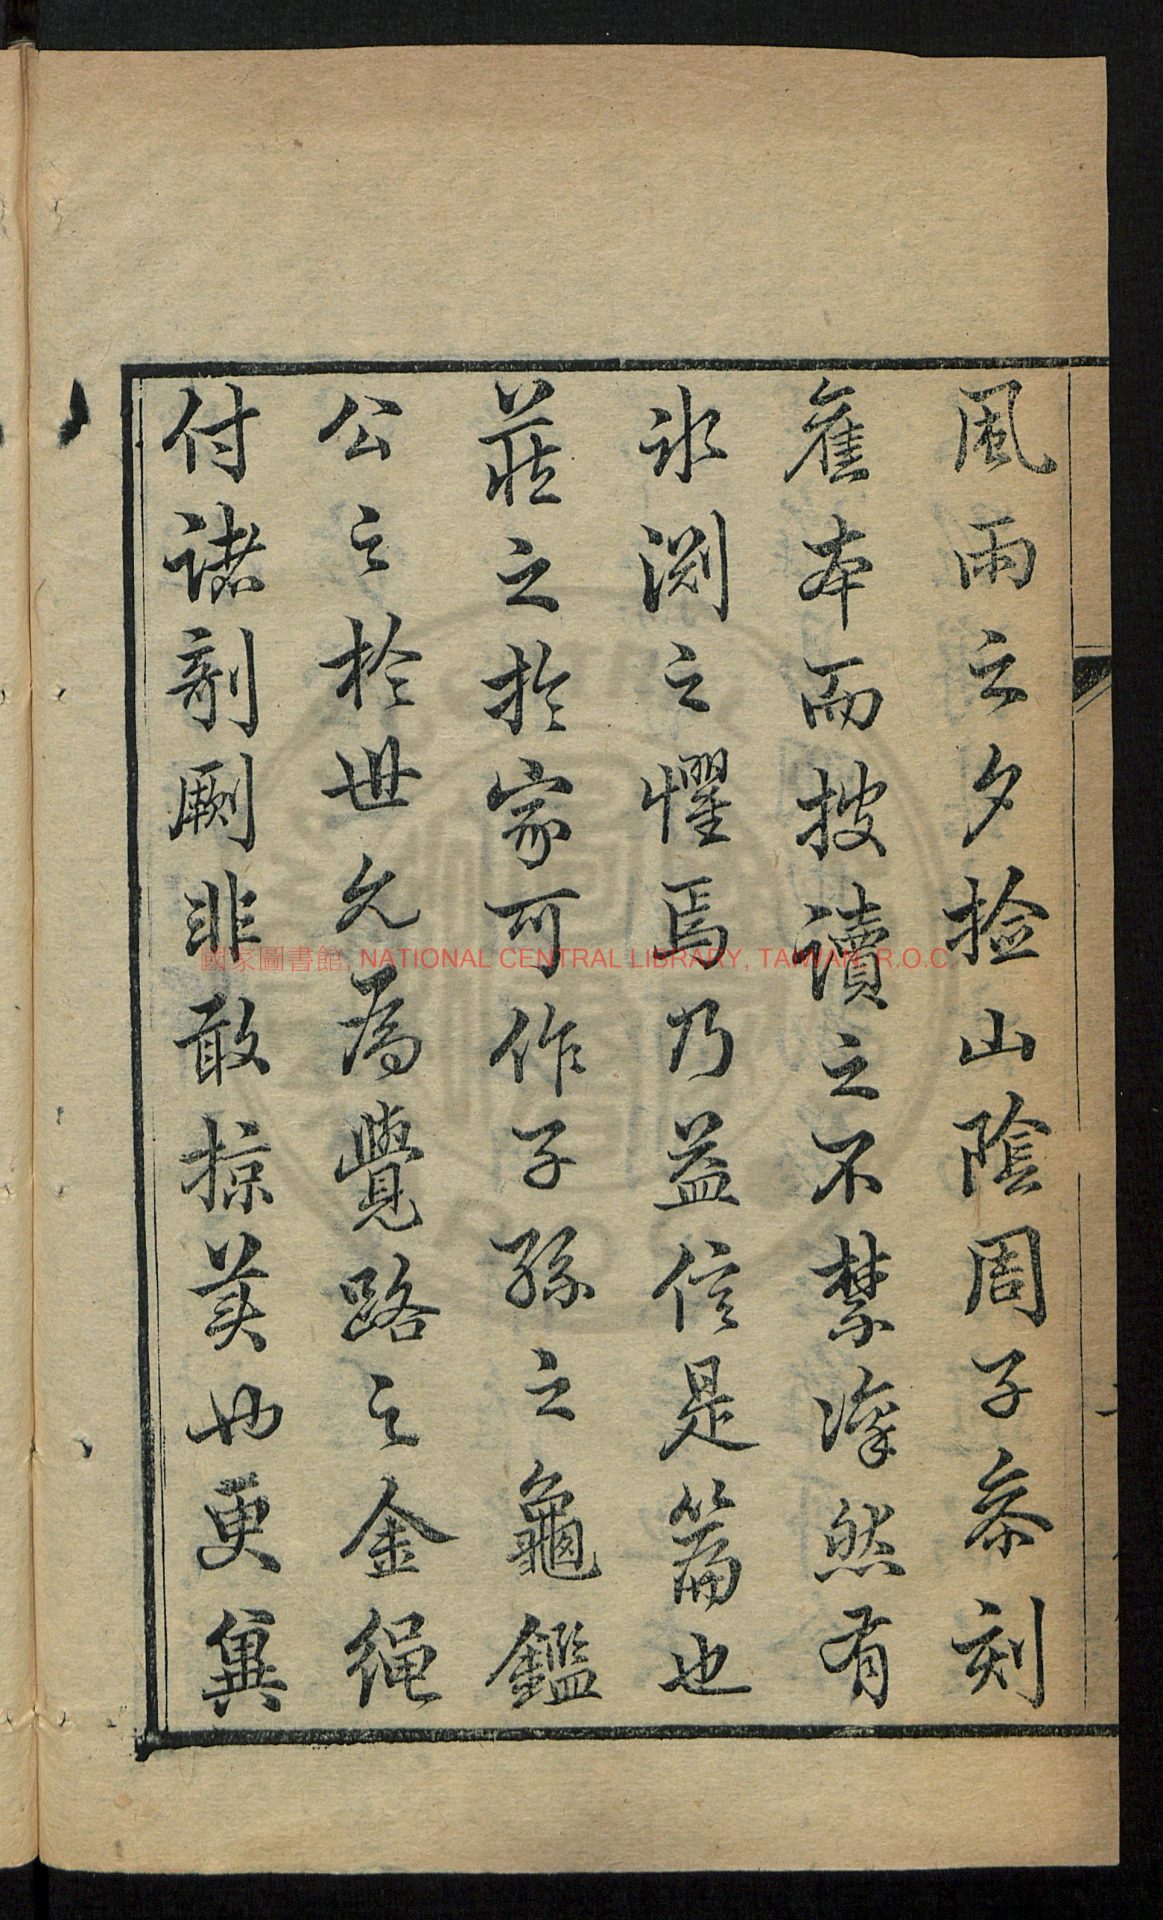 風雨之夕捡山陰周子刻
舊本而披讀之不禁凜然有
冰渊之懼焉乃益信是篇也
藏之於家可作子孫之龜鑑
公之於世允為覺路之金繩
付諸剞劂非敢掠美也更冀
國家圖書館, NATIONAL CENTRAL LIBRARY, TAIWAN, R.O.C